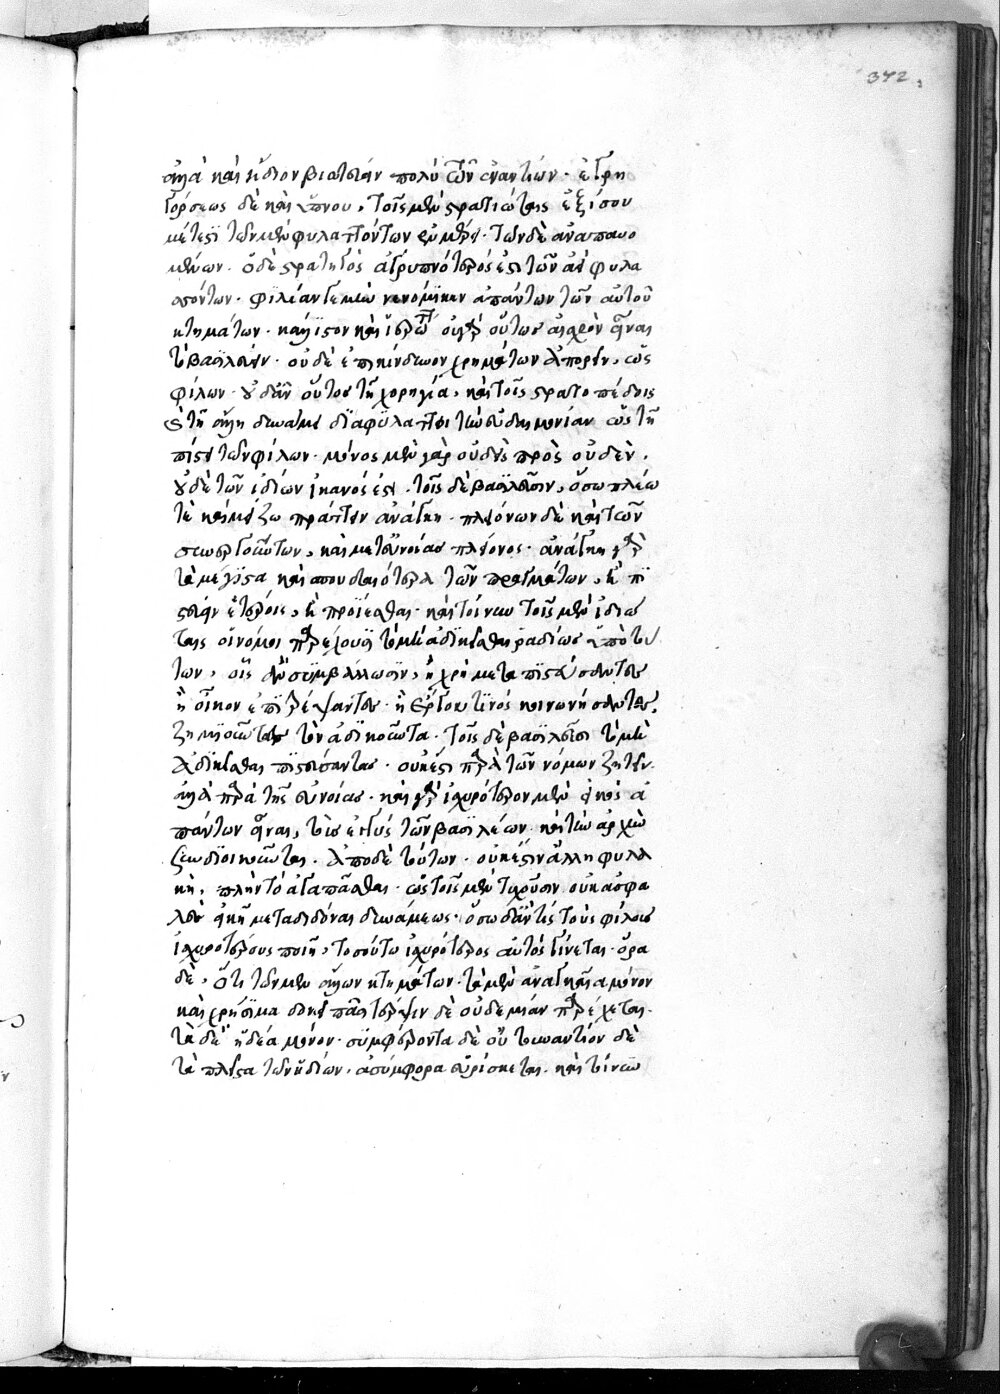 372
ἀλλὰ καὶ ἥδιον βιοτεύειν πολὺ τῶν ἐναντίων· ἐγρη
γόρσεως δὲ καὶ ὕπνου, τοῖς μὲν στρατιώταις ἐξ ἴσου
μέτεστι τῶν μὲν φυλαττόντων ἐν μέρει· τῶν δὲ ἀναπαυο
μένων· ὁ δὲ στρατηγὸς ἀγρυπνότερός ἐστι τῶν ἀεὶ φυλα
ττόντων· φιλίαν γε μὴν νενόμικεν ἁπάντων τῶν αὑτοῦ
κτημάτων· κάλλιστον καὶ ἱερώτατον οὐ γὰρ οὕτως αἰσχρὸν εἶναι
τῷ βασιλεύειν· οὐδὲ ἐπικίνδυνον χρημάτων ἀπορεῖν, ὡς
φίλων· οὐδ' ἂν οὕτως τῇ χορηγίᾳ, καὶ τοῖς στρατοπέδοις
καὶ τῇ ἄλλῃ δυνάμει διαφυλάττοι τὴν εὐδαιμονίαν ὡς τῇ
πίστει τῶν φίλων· μόνος μὲν γὰρ οὐδεὶς πρὸς οὐδὲν,
οὐδὲ τῶν ἰδίων ἱκανός ἐστι· τοῖς δὲ βασιλεῦσιν, ὅσῳ πλείω
τὲ καὶ μείζω πράττειν ἀνάγκη· πλειόνων δὲ καὶ τῶν
συνεργούντων, καὶ μετ' εὐνοίας πλείονος· ἀνάγκη γὰρ
τὰ μέγιστα καὶ σπουδαιότερα τῶν πραγμάτων, ἢ πι
στεύειν ἑτέροις, ἢ προΐεσθαι· καὶ τοίνυν τοῖς μὲν ἰδιώ
ταις οἱ νόμοι παρέχουσι τὸ μὴ ἀδικεῖσθαι ῥᾳδίως ὑπὸ τού
των, οἷς ἂν συμβάλλωσιν, ἢ χρήματα πιστεύσαντες
ἢ οἶκον ἐπιτρέψαντες· ἢ ἔργου τινὸς κοινωνήσαντες,
ζημιοῦντες τὸν ἀδικοῦντα· τοῖς δὲ βασιλεῦσι τὸ μὴ
ἀδικεῖσθαι πιστεύσαντας· οὐκ ἔστι παρὰ τῶν νόμων ζητεῖν
ἀλλὰ παρὰ τῆς εὐνοίας· καὶ γὰρ ἰσχυρότερον μὲν εἰκὸς ἁ
πάντων εἶναι, τοὺς ἐγγὺς τῶν βασιλέων· καὶ τὴν ἀρχὴν
ξυνδιοικοῦντας· ἀπὸ δὲ τούτων· οὐκ ἔστιν ἄλλη φυλα
κὴ, πλὴν τὸ ἀγαπᾶσθαι· ὡς τοῖς μὲν τυχοῦσιν οὐκ ἀσφα
λὲς εἰκῇ μεταδιδόναι δυνάμεως· ὅσῳ δ' ἄν τις τοὺς φίλους
ἰσχυροτέρους ποιῇ, τοσούτῳ ἰσχυρότερος αὐτὸς γίνεται· ὅρα
δὲ, ὅτι τῶν μὲν ἄλλων κτημάτων· τὰ μὲν ἀναγκαῖα μόνον
καὶ χρήσιμα δοκεῖ πᾶσι τέρψιν δὲ οὐδεμίαν παρέχεται·
τὰ δὲ ἡδέα μόνον· συμφέροντα δὲ οὔ τοὐναντίον δὲ
τὰ πλεῖστα τῶν ἡδέων· ἀσύμφορα εὑρίσκεται· καὶ τοίνυν